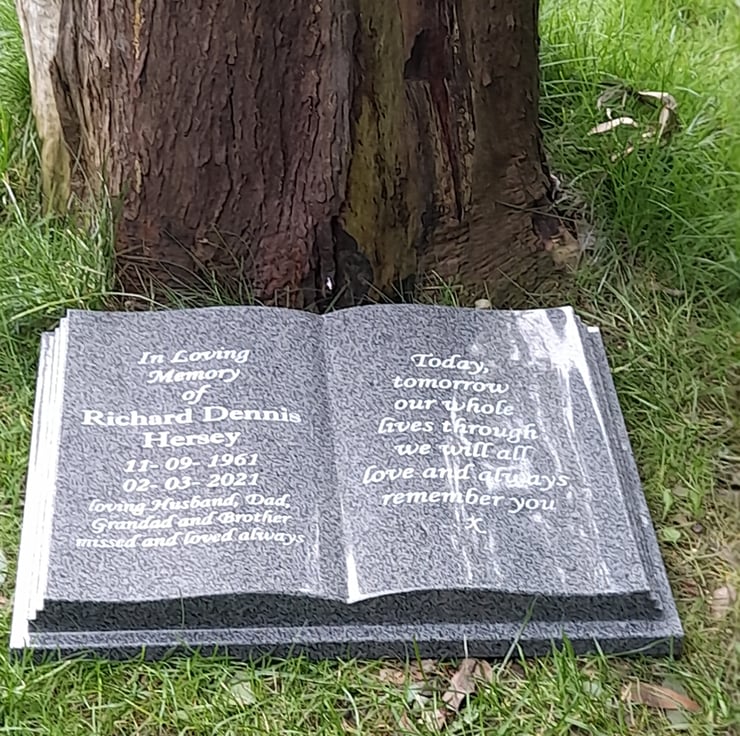 In Loving
Memory
of
Richard Dennis
Hersey
11- 09- 1961
02- 03- 2021
loving Husband, Dad,
Grandad and Brother
missed and loved always
Today,
tomorrow
our whole
lives through
we will all
love and always
remember you
x